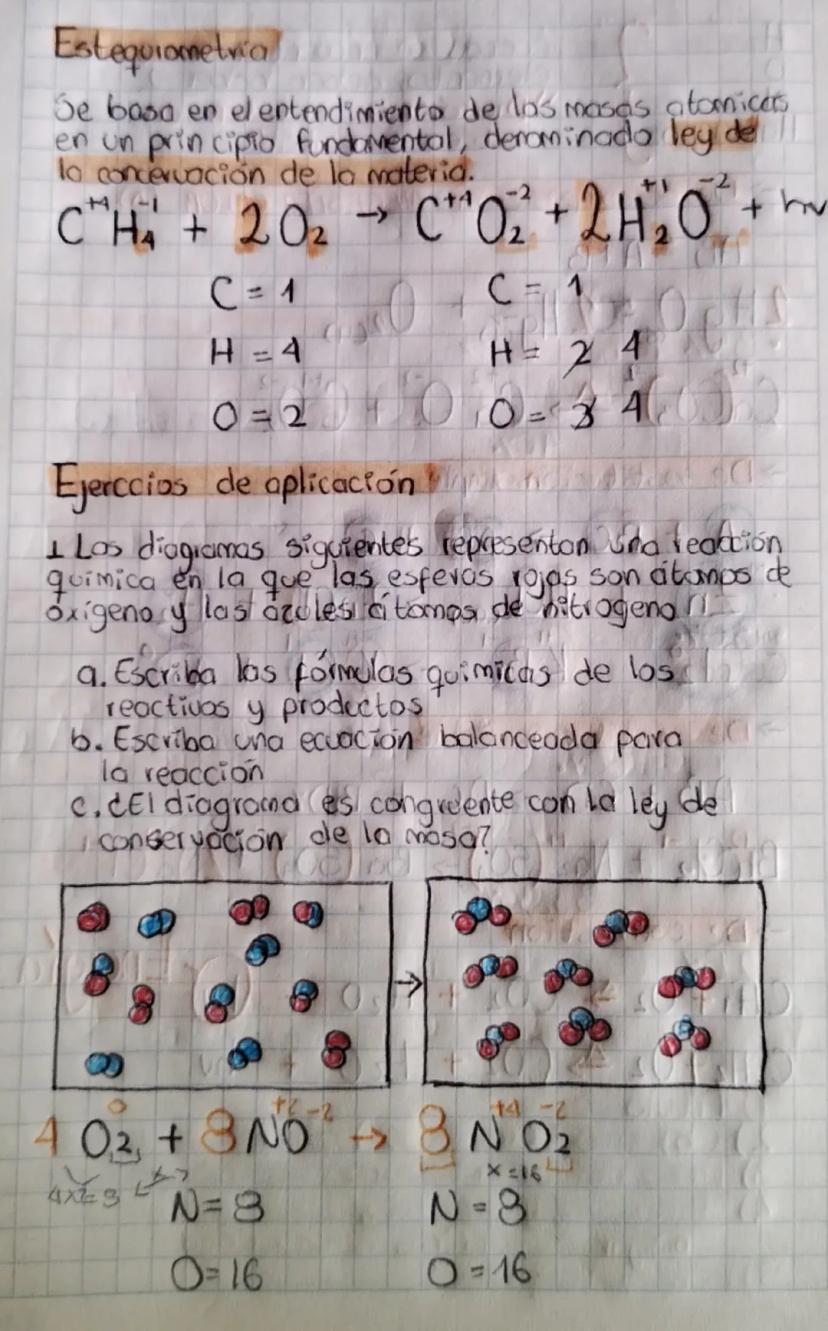 Estequiometria
Se basa en el entendimiento de las masas atomicas
en un principio fundamental, denominado ley de
la concervación de la materia.
C⁺⁴H₄⁻¹ + 2O₂ → C⁺⁴O₂⁻² + 2H₂⁺¹O⁻² + hv
C = 1 C = 1
H = 4 H = 2 4
O = 2 O = 3 4
Ejerccios de aplicación
1 Los diagramas siguientes representan una reacción
química en la que las esferas rojas son átomos de
oxígeno y las azules átomos de nitrogeno
a. Escriba las fórmulas quimicas de los
reactivos y productos
b. Escriba una ecuación balanceada para
la reacción
c. ¿El diagrama es congruente con la ley de
conservación de la masa?
→
4 O₂⁰ + 8NO⁺²⁻² → 8 N⁺⁴O₂⁻²
4x2=8 x=16
N=8 N=8
O=16 O=16